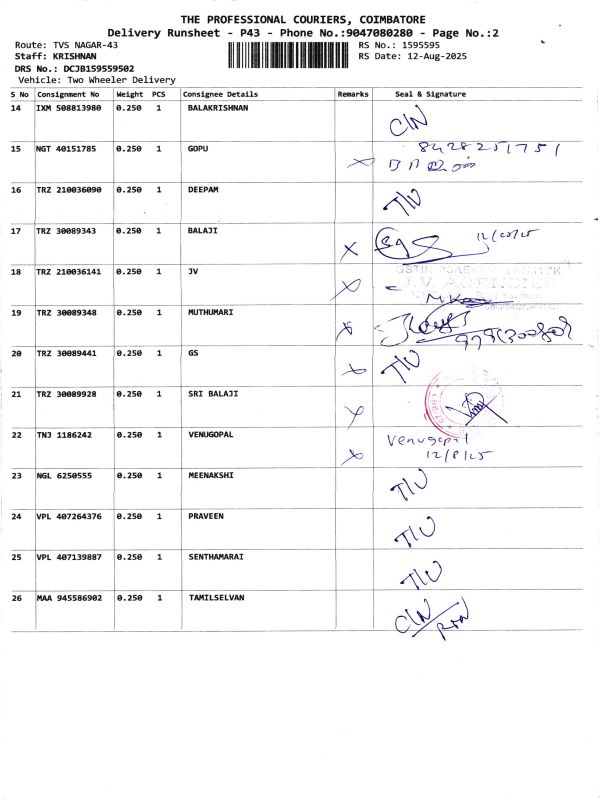 THE PROFESSIONAL COURIERS, COIMBATORE
Delivery Runsheet - P43 - Phone No.:9047080280 - Page No.:2
Route: TVS NAGAR-43 RS No.: 1595595
Staff: KRISHNAN RS Date: 12-Aug-2025
DRS No.: DCJB159559502
Vehicle: Two Wheeler Delivery
S No Consignment No Weight PCS Consignee Details Remarks Seal & Signature
14 IXM 508813980 0.250 1 BALAKRISHNAN C/N
15 NGT 40151785 0.250 1 GOPU 8428251751
16 TRZ 210036090 0.250 1 DEEPAM T/U
17 TRZ 30089343 0.250 1 BALAJI 12/08/25
18 TRZ 210036141 0.250 1 JV
19 TRZ 30089348 0.250 1 MUTHUMARI
20 TRZ 30089441 0.250 1 GS T/U
21 TRZ 30089928 0.250 1 SRI BALAJI
22 TNJ 1186242 0.250 1 VENUGOPAL Venugopal
12/8/25
23 NGL 6250555 0.250 1 MEENAKSHI T/U
24 VPL 407264376 0.250 1 PRAVEEN T/U
25 VPL 407139887 0.250 1 SENTHAMARAI T/U
26 MAA 945586902 0.250 1 TAMILSELVAN C/N